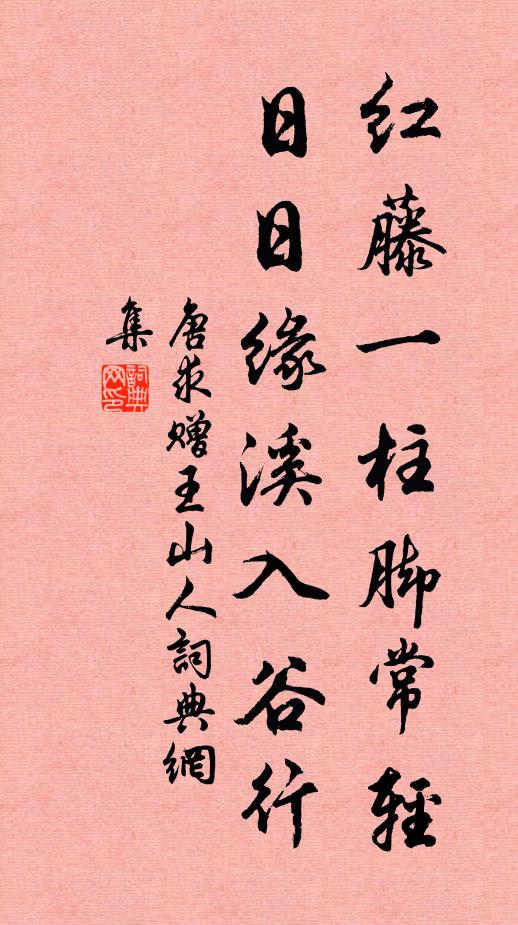 红藤一柱脚常轻
日日缘溪入谷行
唐求赠王山人詞典網
集
詞典
网印